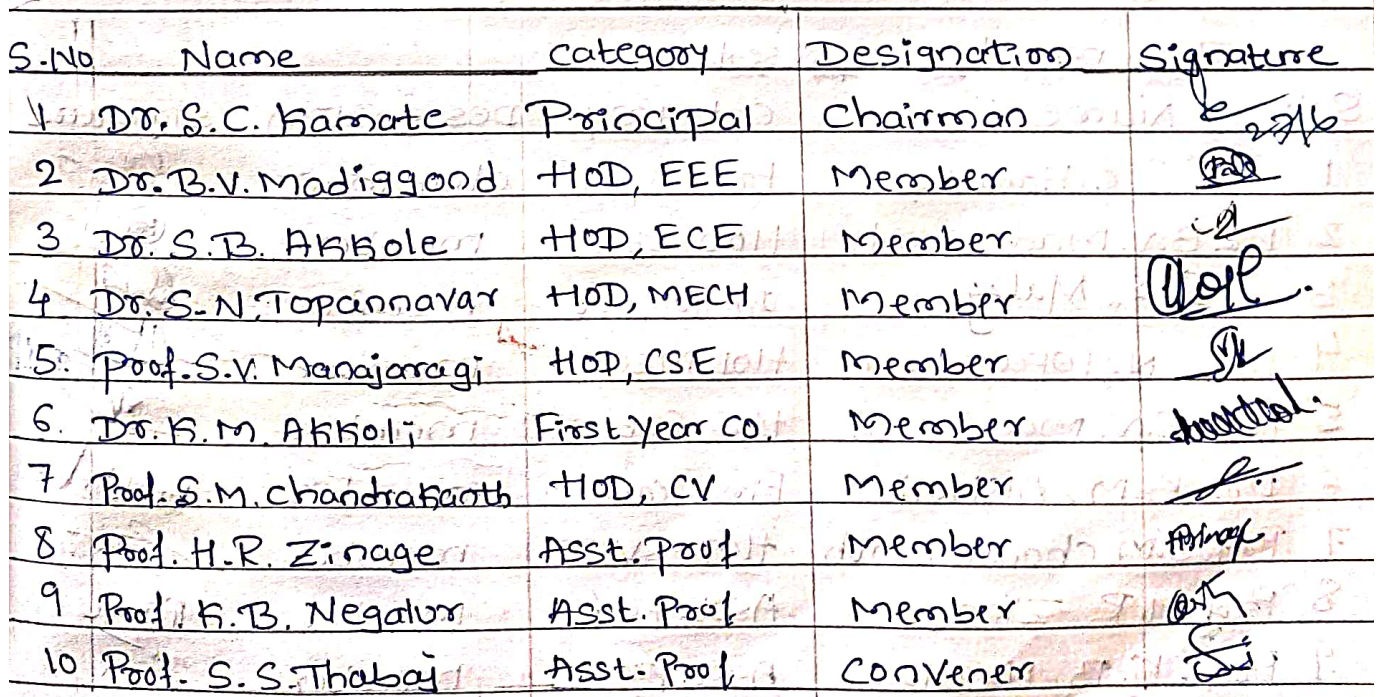 S.No Name Category Designation Signature
1 Dr. S.C. Kamate Principal Chairman 27/6
2 Dr. B.V. Madiggond HOD, EEE Member
3 Dr. S.B. Akkole HOD, ECE Member
4 Dr. S.N. Topannavar HOD, MECH Member
5. Prof. S.V. Manajaragi HOD, CSE Member
6. Dr. K.M. Akkoli First Year CO. Member
7 Prof. S.M. Chandrakanth HOD, CV Member
8 Prof. H.R. Zinage Asst. Prof Member
9 Prof. K.B. Negalur Asst. Prof Member
10 Prof. S.S. Thabaj Asst. Prof Convener